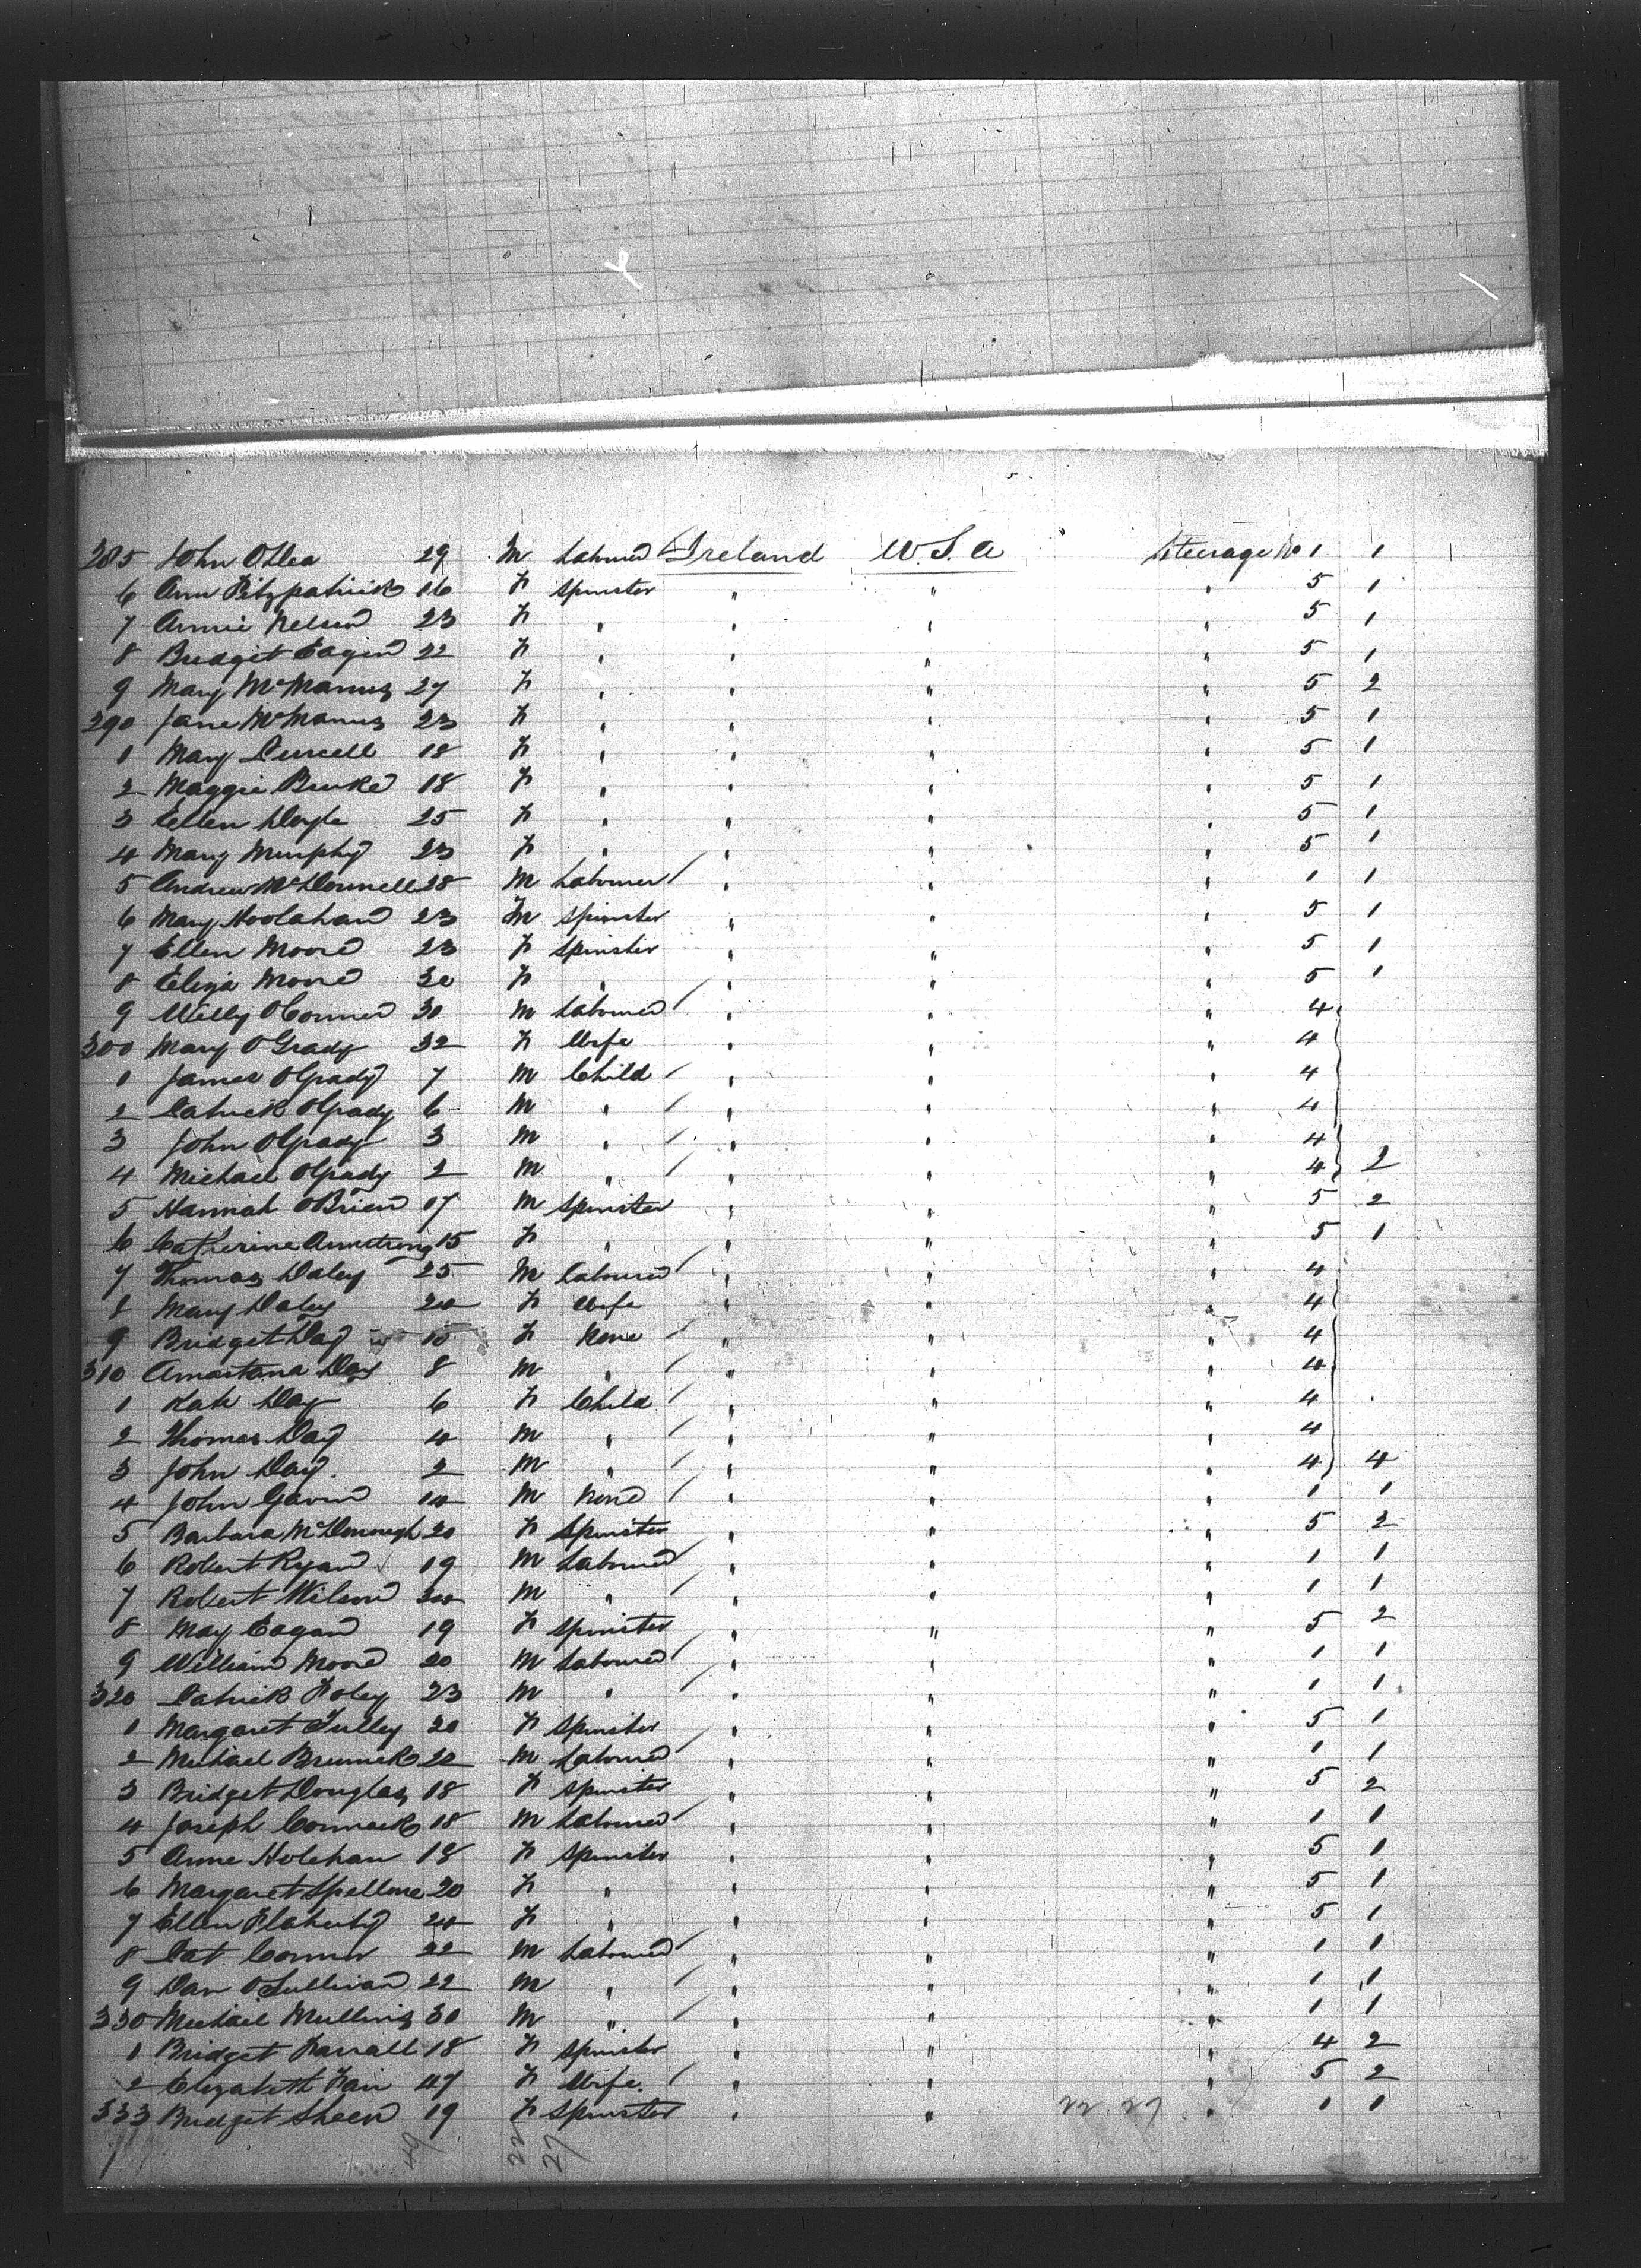 285 John OShea 29 M Labourer Ireland U.S.A Steerage No 1 1
6 Ann Fitzpatrick 16 F Spinster " " " 5 1
7 Annie Nelson 23 F " " " " 5 1
8 Bridget Eagen 22 F " " " " 5 1
9 Mary McManus 27 F " " " " 5 2
290 Jane McManus 23 F " " " " 5 1
1 Mary Purcell 18 F " " " " 5 1
2 Maggie Burke 18 F " " " " 5 1
3 Ellen Doyle 25 F " " " " 5 1
4 Mary Murphy 23 F " " " " 5 1
5 Andrew McDonnell 28 M Labourer " " " 1 1
6 Mary Hoolahan 23 M Spinster " " " 5 1
7 Ellen Moore 23 F Spinster " " " 5 1
8 Eliza Moore 30 F " " " " 5 1
9 Willy OConner 30 M Labourer " " " 4
300 Mary OGrady 32 F Wife " " " 4
1 James OGrady 7 M Child " " " 4
2 Patrick OGrady 6 M " " " " 4
3 John OGrady 3 M " " " " 4
4 Michael OGrady 2 M " " " " 4 2
5 Hannah OBrien 17 M Spinster " " " 5 2
6 Catherine Armstrong 15 F " " " " 5 1
7 Thomas Daley 25 M Labourer " " " 4
8 Mary Daley 24 F Wife " " " 4
9 Bridget Day 10 F None " " " 4
310 Day 8 M " " " " 4
1 Kate Day 6 F Child " " " 4
2 Thomas Day 4 M " " " " 4
3 John Day 2 M " " " " 4 4
4 John Gavin 14 M None " " " 1 1
5 Barbara McDonough 20 F Spinster " " " 5 2
6 Robert Ryan 19 M Labourer " " " 1 1
7 Robert Wilson 24 M " " " " 1 1
8 May Eagan 19 F Spinster " " " 5 2
9 William Moore 20 M Labourer " " " 1 1
320 Patrick Foley 23 M " " " " 1 1
1 Margaret Tulley 20 F Spinster " " " 5 1
2 Michael 22 M Labourer " " " 1 1
3 Bridget Douglas 18 F Spinster " " " 5 2
4 Joseph Cormack 18 M Labourer " " " 1 1
5 Anne Holehan 18 F Spinster " " " 5 1
6 Margaret Spellme 20 F " " " " 5 1
7 Ellen Flaherty 24 F " " " " 5 1
8 Pat Connor 22 M Labourer " " " 1 1
9 Dan OSullivan 22 M " " " " 1 1
330 Michael Mullins 30 M " " " " 1 1
1 Bridget Farrall 18 F Spinster " " " 4 2
2 Elizabeth Fair 47 F Wife " " " 5 2
333 Bridget Sheen 19 F Spinster " " 22 27 " 1 1
49 22 27